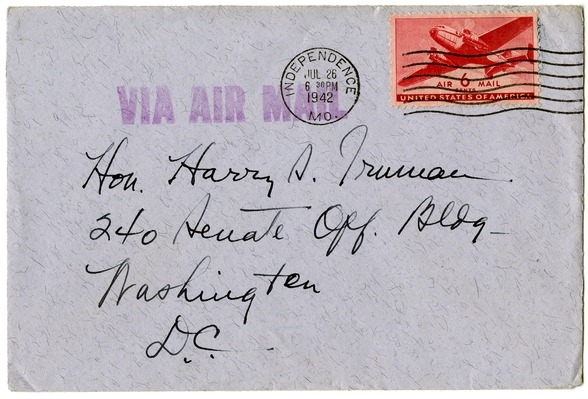 INDEPENDENCE
JUL 26
6 30 PM
1942
MO.
AIR 6 MAIL
CENTS
UNITED STATES OF AMERICA
VIA AIR MAIL
Hon. Harry S. Truman
240 Senate Off. Bldg-
Washington
D.C.